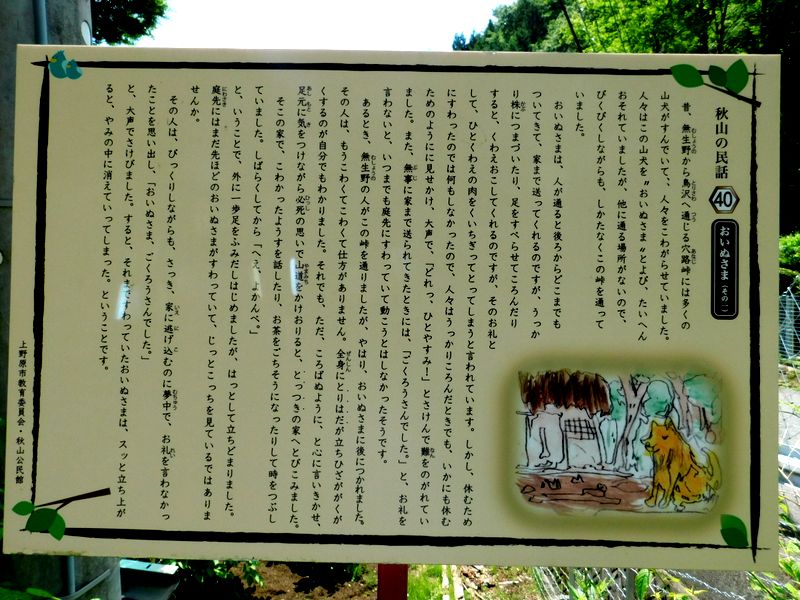 秋山の民話 40 おいぬさま（その一）
昔、無生野から鳥沢へ通じる穴路峠には多くの
山犬がすんでいて、、人々をこわがらせていました。
人々はこの山犬を〝おいぬさま〟とよび、たいへん
おそれていましたが、他に通る場所がないので、
びくびくしながらも、しかたなくこの峠を通って
いました。
おいぬさまは、人が通ると後ろからどこまでも
ついてきて、家まで送ってくれるのですが、うっか
り株につまづいたり、足をすべらせてころんだり
すると、くわえおこしてくれるのですが、そのお礼と
して、ひとくわえの肉をくいちぎってとってしまうと言われています。しかし、休むため
にすわったのでは何もしなかったので、人々はうっかりころんだときでも、いかにも休む
ためのようにに見せかけ、大声で、「どれっ、ひとやすみ！」とさけんで難をのがれてい
ました。また、無事に家まで送られてきたときには、「ごくろうさんでした。」と、お礼を
言わないと、いつまでも庭先にすわっていて動こうとはしなかったそうです。
あるとき、無生野の人がこの峠を通りましたが、やはり、おいぬさまに後につかれました。
その人は、もうこわくてこわくて仕方がありません。全身にとりはだが立ちひざががくが
くするのが自分でもわかりました。それでも、ただ、ころばぬように、と心に言いきかせ、
足元に気をつけながら必死の思いで山道をかけおりると、とっつきの家へとびこみました。
そこの家で、こわかったようすを話したり、お茶をごちそうになったりして時をつぶし
ていました。しばらくしてから「へえ、よかんべ。」
と、いうことで、外に一歩足をふみだしはじめましたが、はっとして立ちどまりました。
庭先にはまだ先ほどのおいぬさまがすわっていて、じっとこっちを見ているではありま
せんか。
その人は、びっくりしながらも、さっき、家に逃げ込むのに夢中で、お礼を言わなかっ
たことを思い出し、「おいぬさま、ごくろうさんでした。」
と、大声でさけびました。すると、それまですわっていたおいぬさまは、スッと立ち上が
ると、やみの中に消えていってしまった。ということです。
上野原市教育委員会・秋山公民館